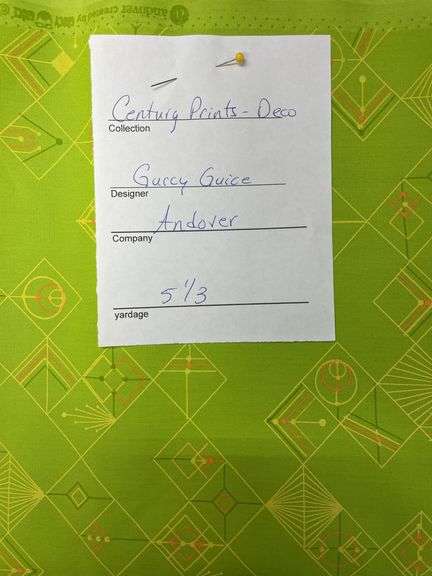 andover created by
Century Prints - Deco
Collection
Guccy Guice
Designer
Andover
Company
5 1/3
yardage